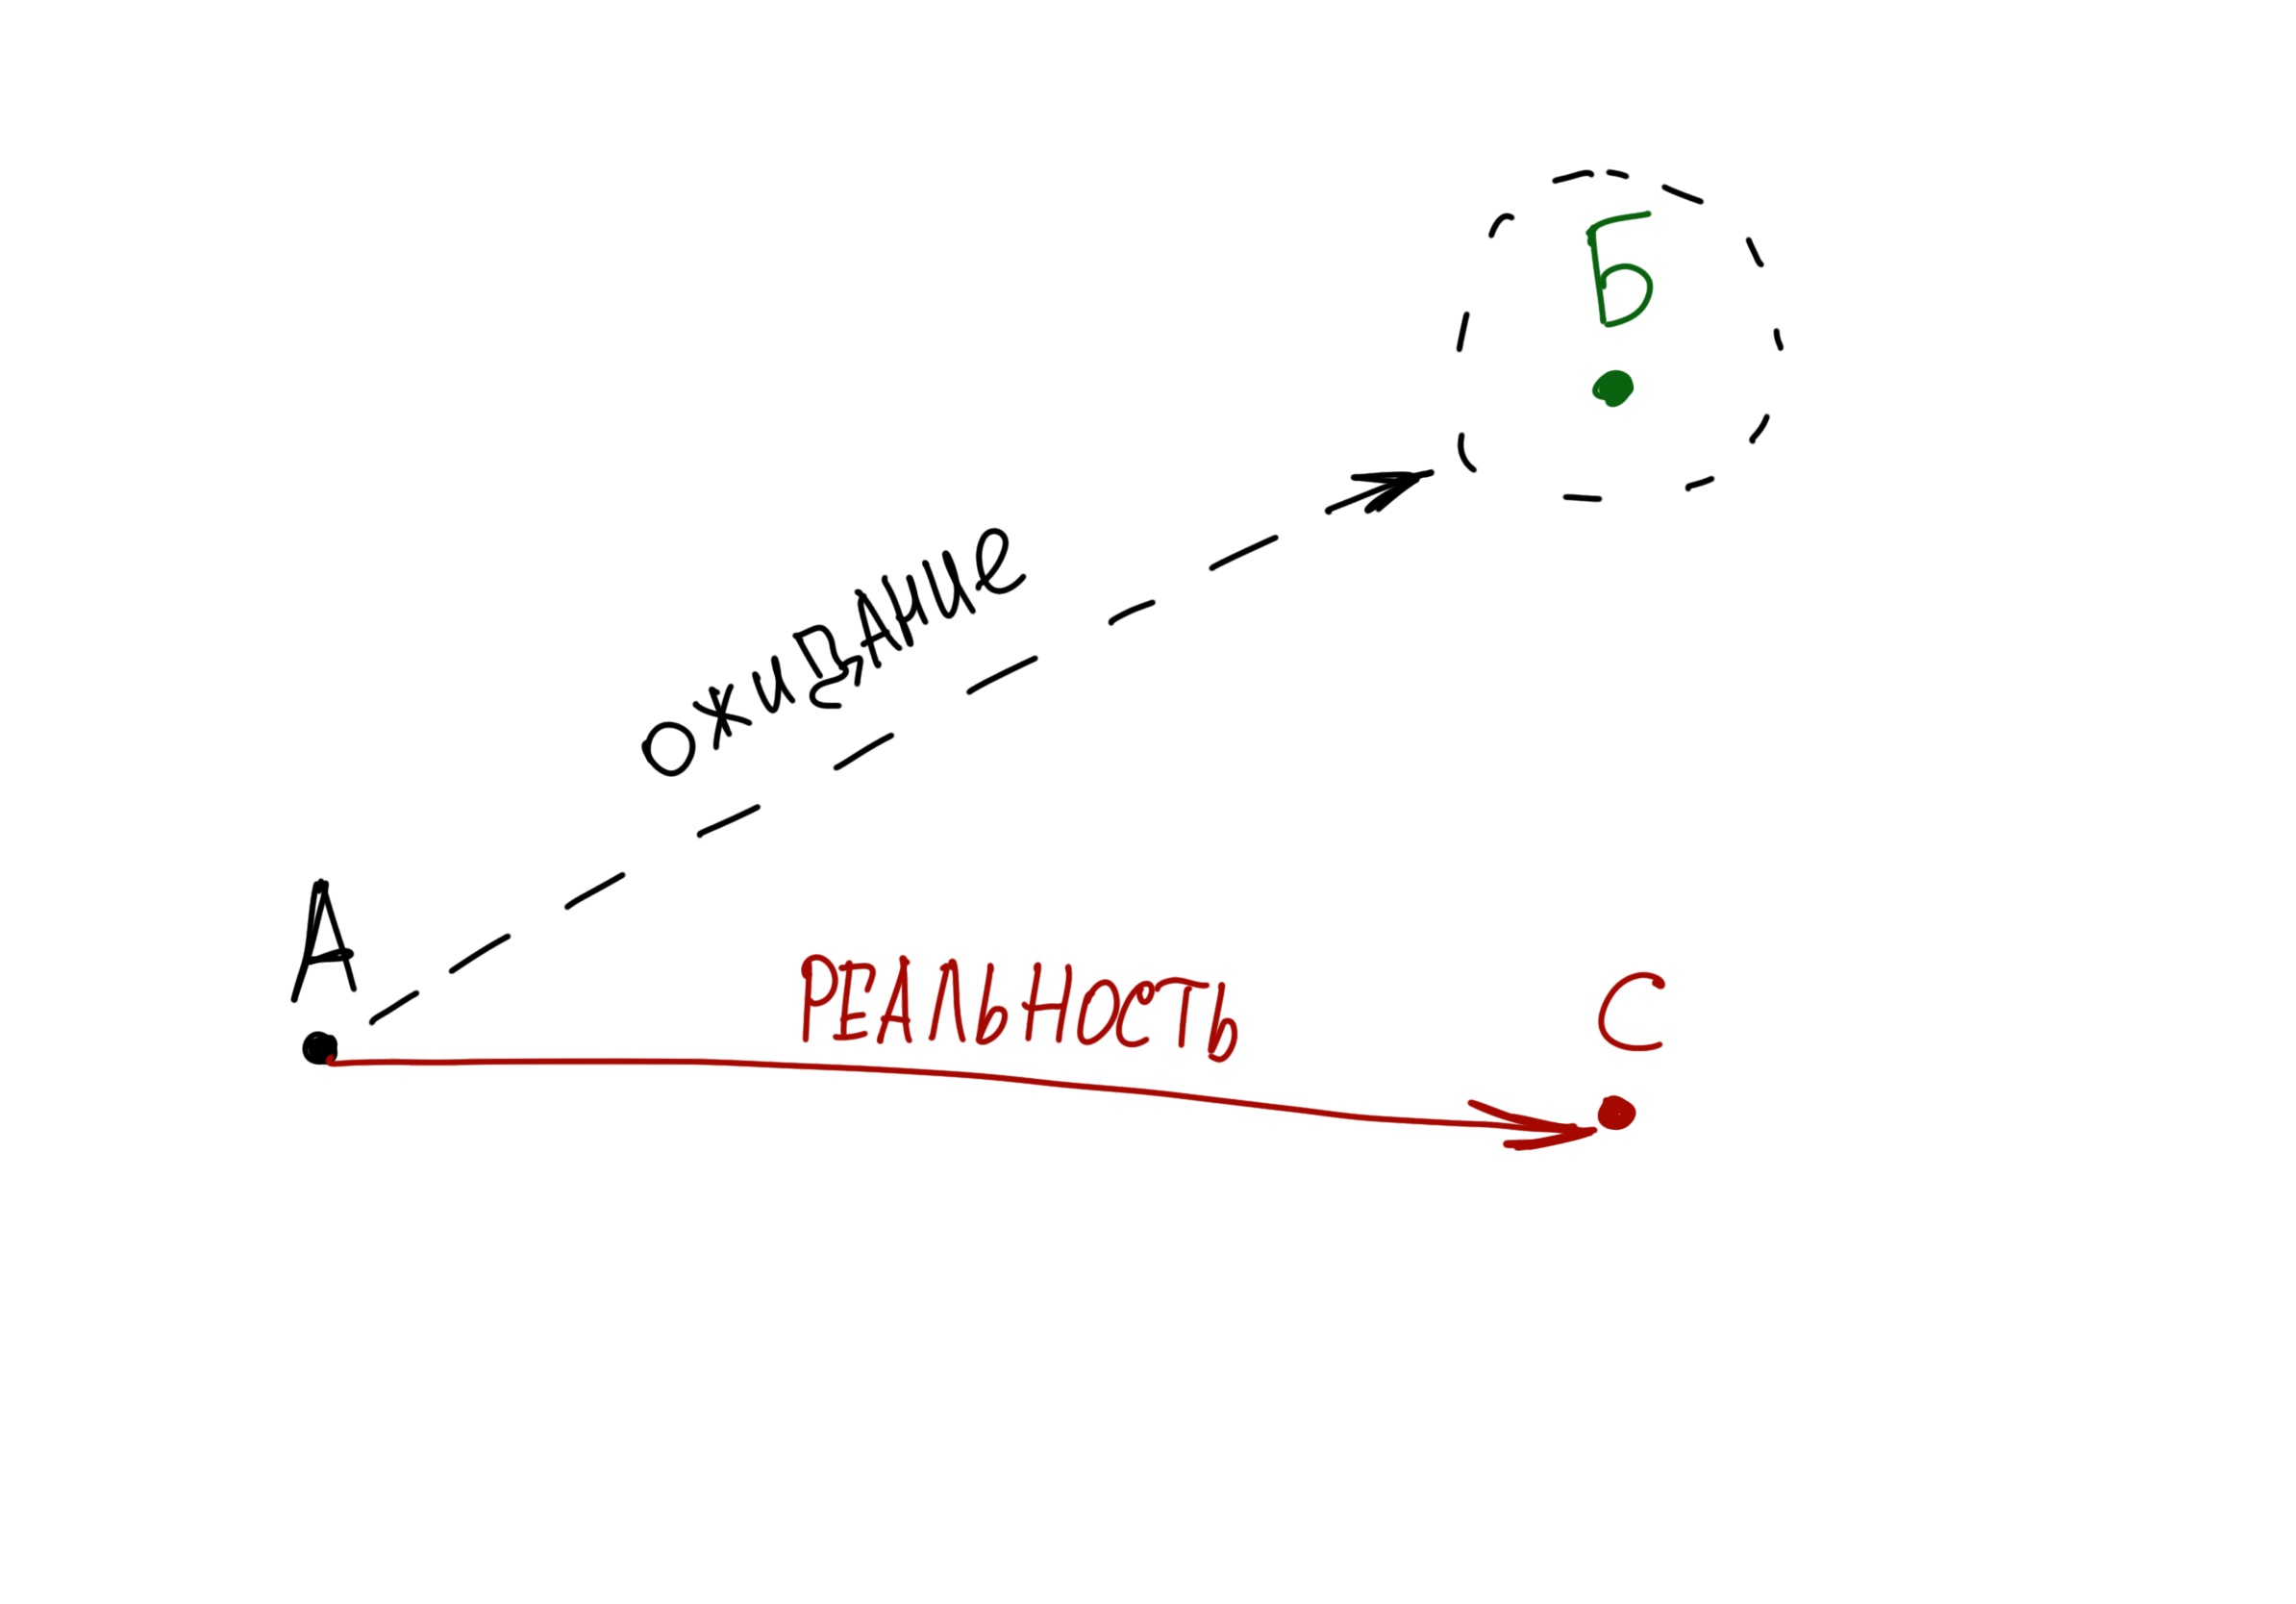 Б
ожидАНие
А
РЕАЛЬНОСТЬ
С